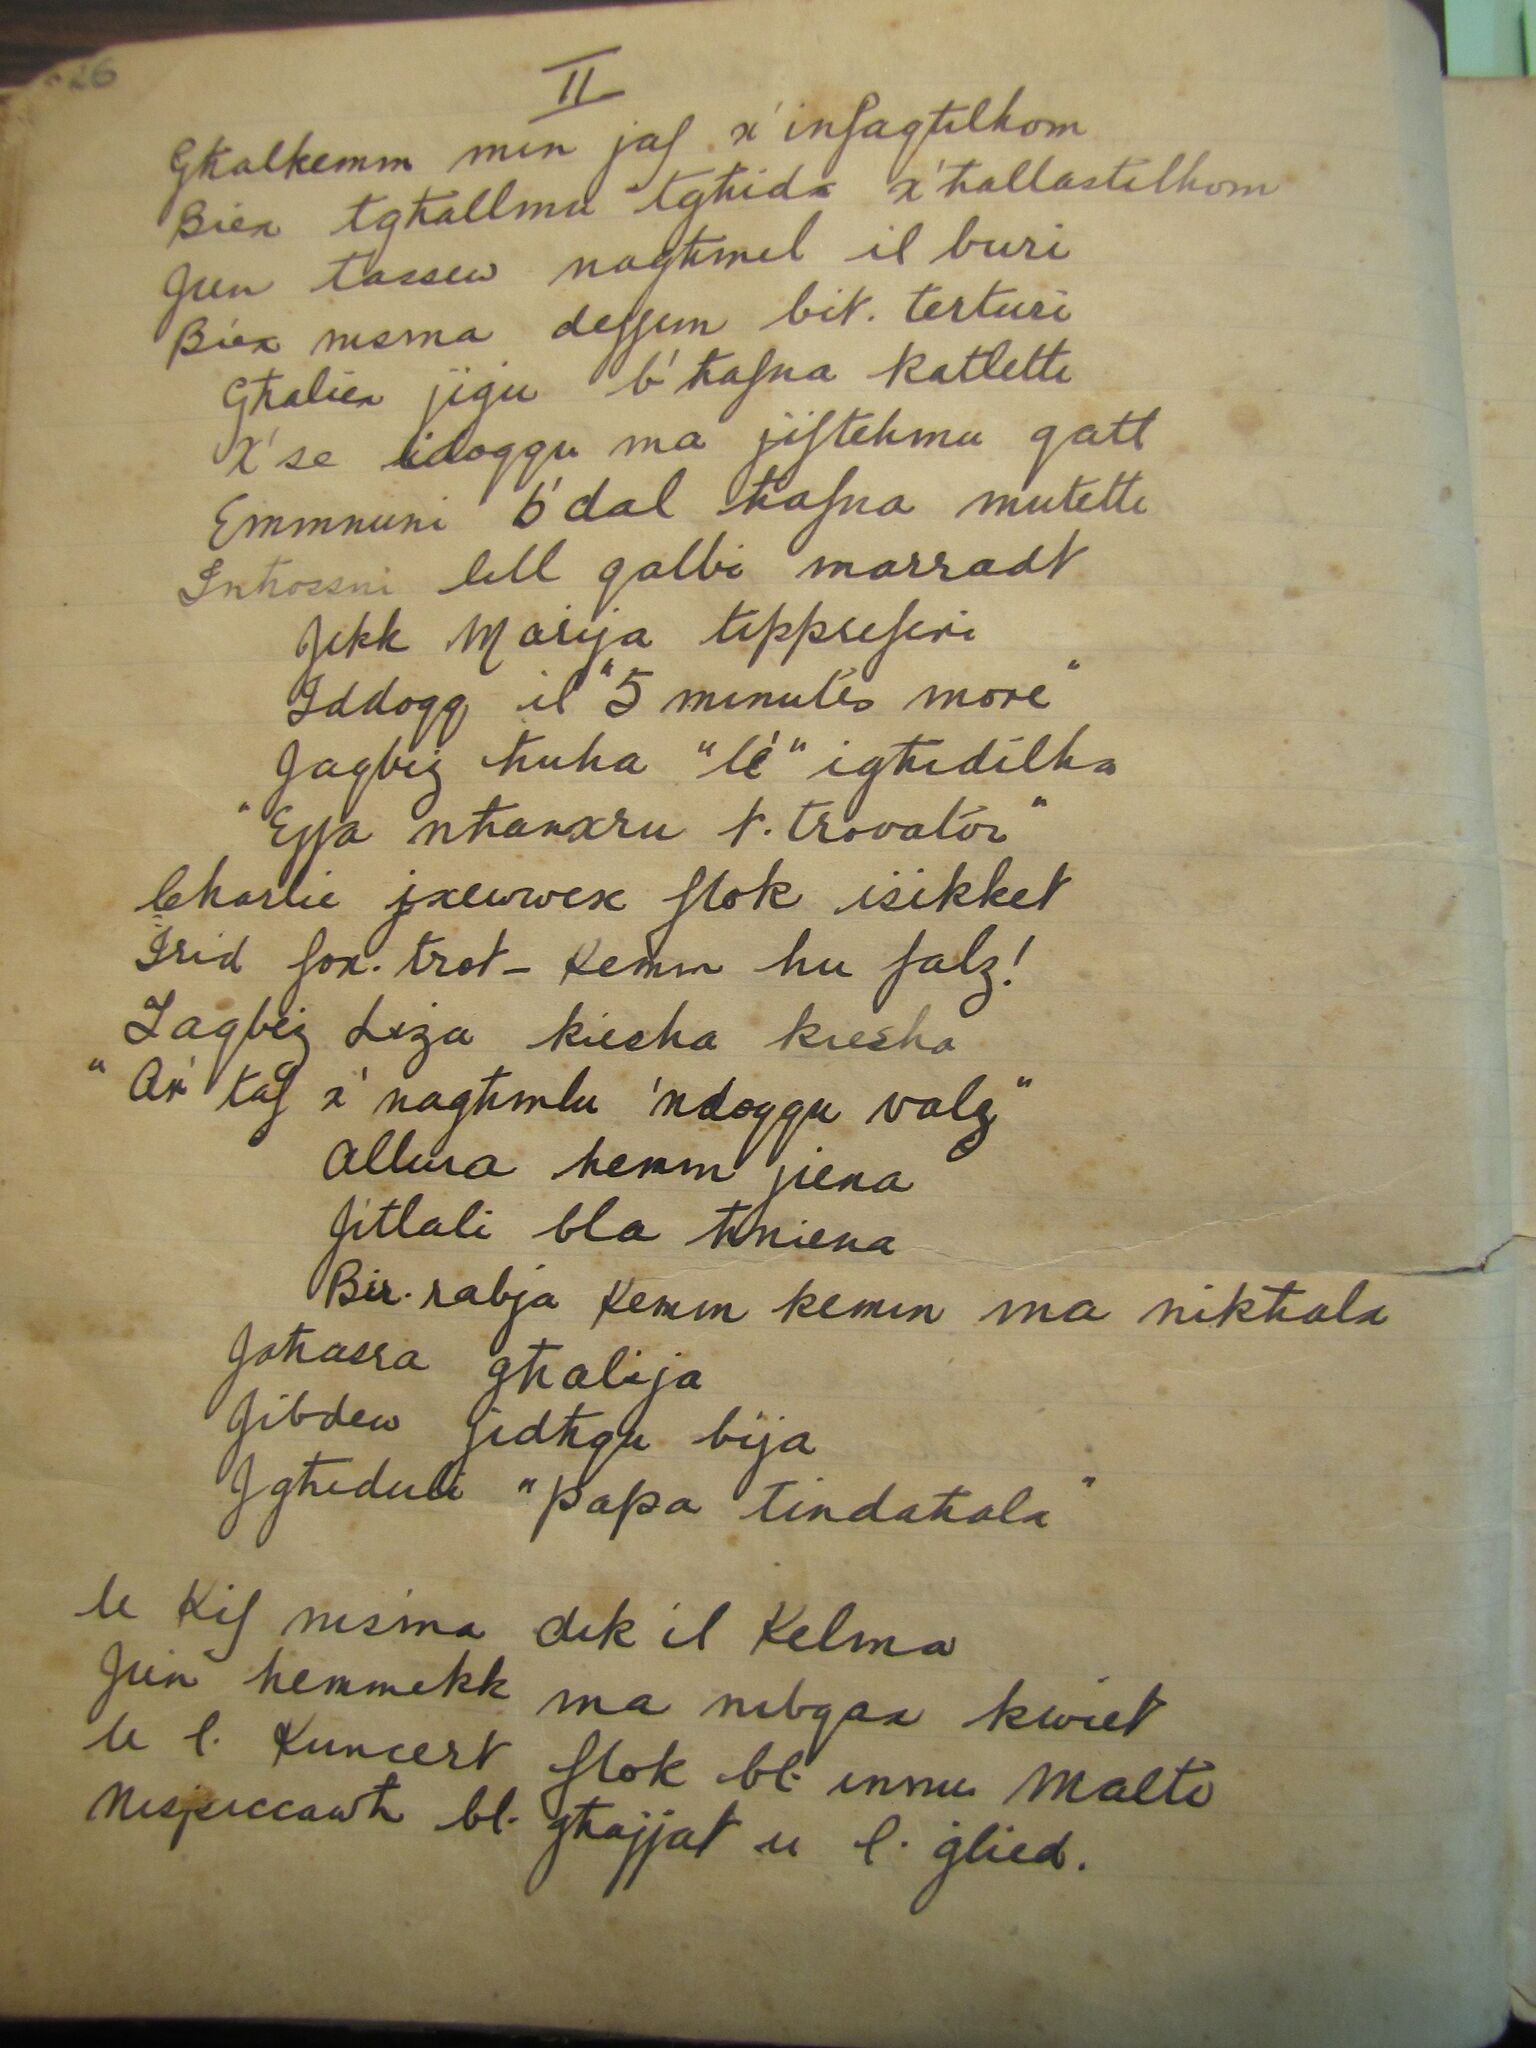 26
II
Għalkemm min jaf x'infaqtilhom
Biex tgħallmu tgħidx x'ħallastilhom
Jien tassew nagħmel il buri
Biex nisma deffun bit-terturi
Għaliex jiġu b'ħafna katletti
X'se idoqqu ma jiftehmu qatt
Emmnuni b'dal ħafna mutetti
Inħossni lill qalbi marradt
Jekk Marija tippreferi
Iddoqq il "5 minutes more"
Jaqbiż huha "lé" igħidilha
"Ejja nħanxru t-trovatór"
Charlie jxewwex flok isikket
Irid fox-trot - Kemm hu falz!
Taqbeż Liża kiesħa kiesħa
"Ax' taf x'nagħmlu 'ndoqqu valz"
Allura hemm jiena
Jitlali bla ħniena
Bir-rabja Kemm kemm ma nikħala
Jaħasra għalija
Jibdew jidħqu bija
Jgħiduli "papa tindaħala"
U Kif nisma dik il Kelma
Jien hemmekk ma nibqax kwiet
U l-Kunċert flok bl-innu Malti
Nispiċċawh bl-għajjat u l-ġlied.